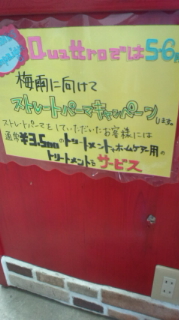 Quattroでは5.6月
梅雨に向けて
ストレートパーマキャンペーン
します。
ストレートパーマをしていただいたお客様には
通常¥3,500のトリートメントとホームケアー用の
トリートメントを サービス